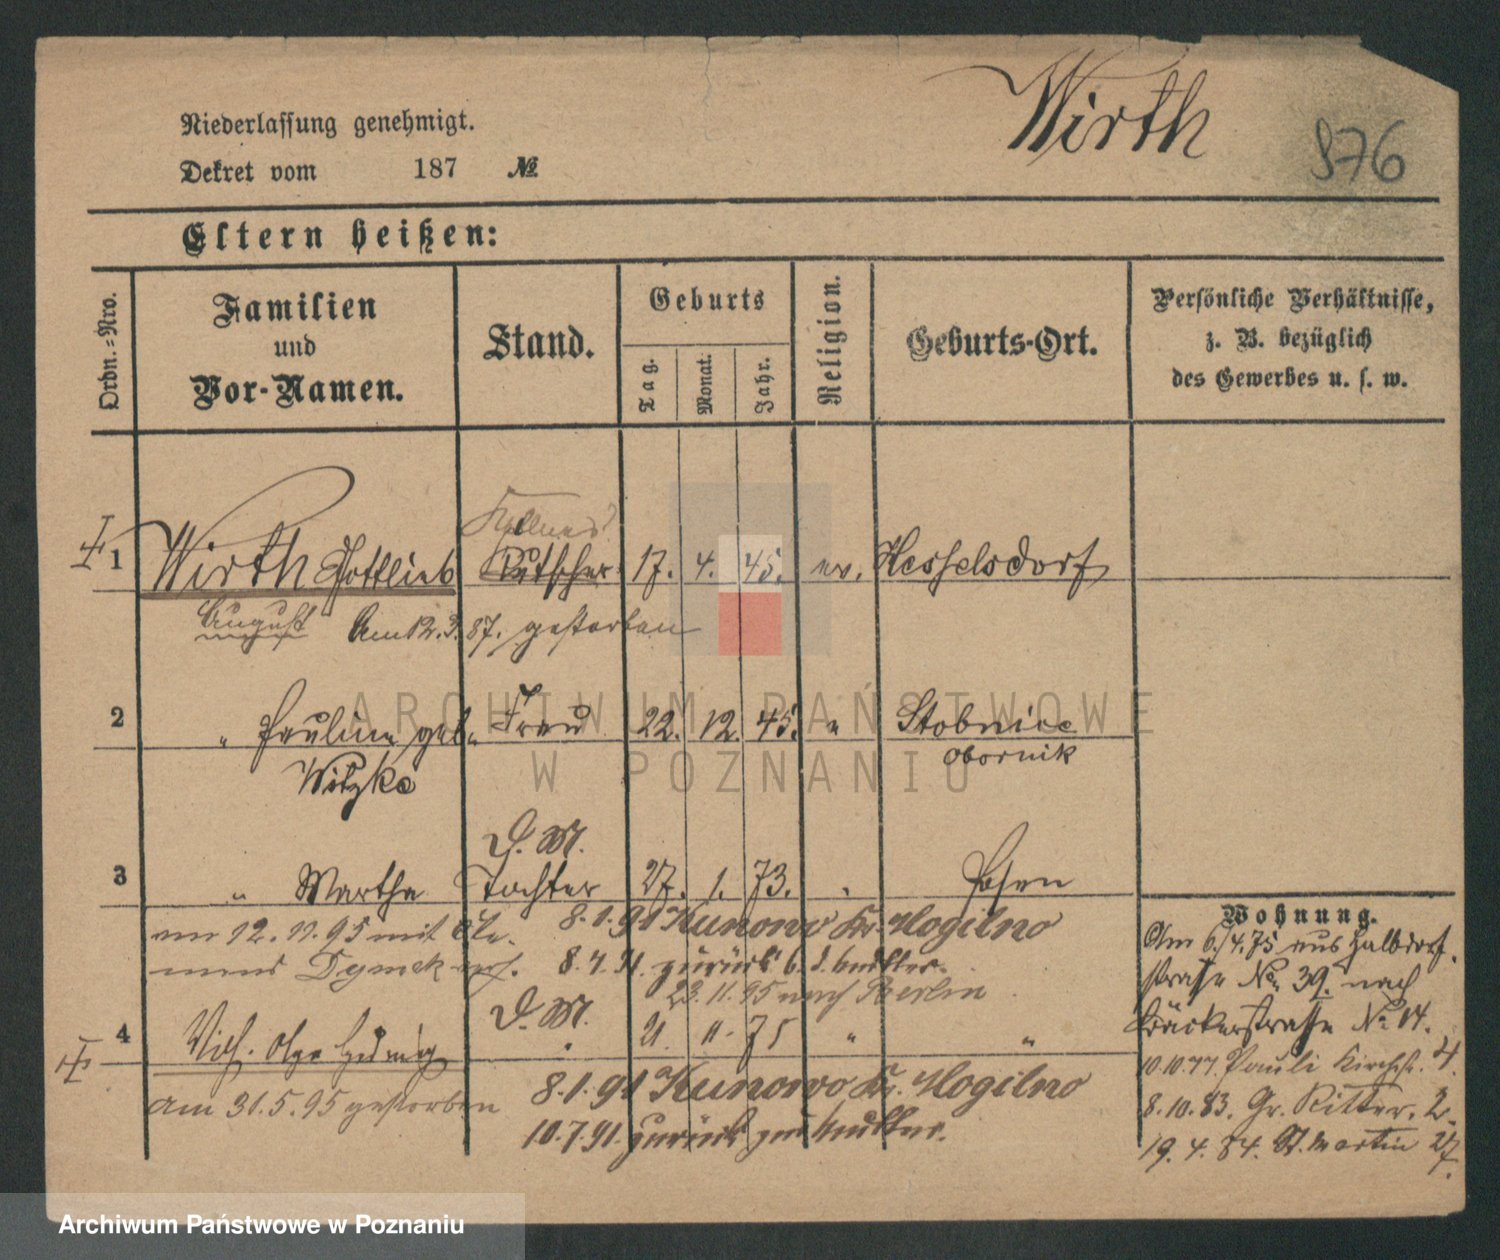 Wirth
976
Niederlassung genehmigt.
Dekret vom 187 №
Eltern heißen:
Ordn.-Nro.
Familien
und
Vor-Namen.
Stand.
Geburts
Tag.
Monat.
Jahr.
Religion.
Geburts-Ort.
Persönliche Verhältnisse,
z. B. bezüglich
des Gewerbes u. s. w.
1 Wirth Gottlieb Kutscher 17. 4. 45. ev. Hesselsdorf
August Am 12. 3. 87. gestorben
2 " Pauline geb. Frau 22. 12. 45. " Stobnice
Witzke Obornik
D. M.
3 " Martha Tochter 27. 1. 73. " Posen
8.1.91 Kunowo Kr. Mogilno
am 12. 11. 95 mit Cle-
mens Dymek
8. 4. 91. zurück
23. 11. 95 nach Berlin
D. M.
4 Olga Hedwig 21. 11. 75 " "
8.1.91 Kunowo Kr. Mogilno
am 31. 5. 95 gestorben
10. 7. 91. zurück zur Mutter.
Wohnung.
Am 6./4. 75 aus Halbdorf-
straße No. 39. nach
Bäckerstraße No 14.
10.10.77 Pauli Kirchst. 4.
8. 10. 83. Gr. Ritter. 2.
19. 4. 84. St. Martin 27.
ARCHIWUM PAŃSTWOWE
W POZNANIU
Archiwum Państwowe w Poznaniu